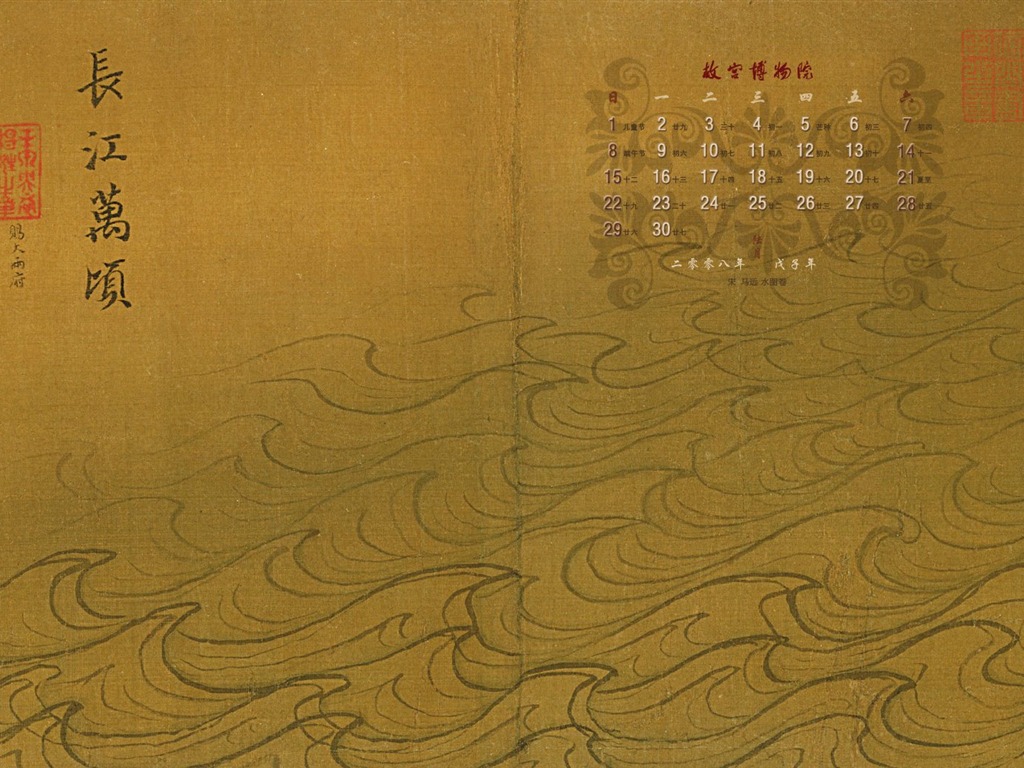 長江萬頃
賜大兩府
故宫博物院
日 一 二 三 四 五 六
1 儿童节 2 廿九 3 三十 4 初一 5 芒种 6 初三 7 初四
8 端午节 9 初六 10 初七 11 初八 12 初九 13 初十 14 十一
15 十二 16 十三 17 十四 18 十五 19 十六 20 十七 21 夏至
22 十九 23 二十 24 廿一 25 廿二 26 廿三 27 廿四 28 廿五
29 廿六 30 廿七
二零零八年 戊子年
宋 马远 水图卷